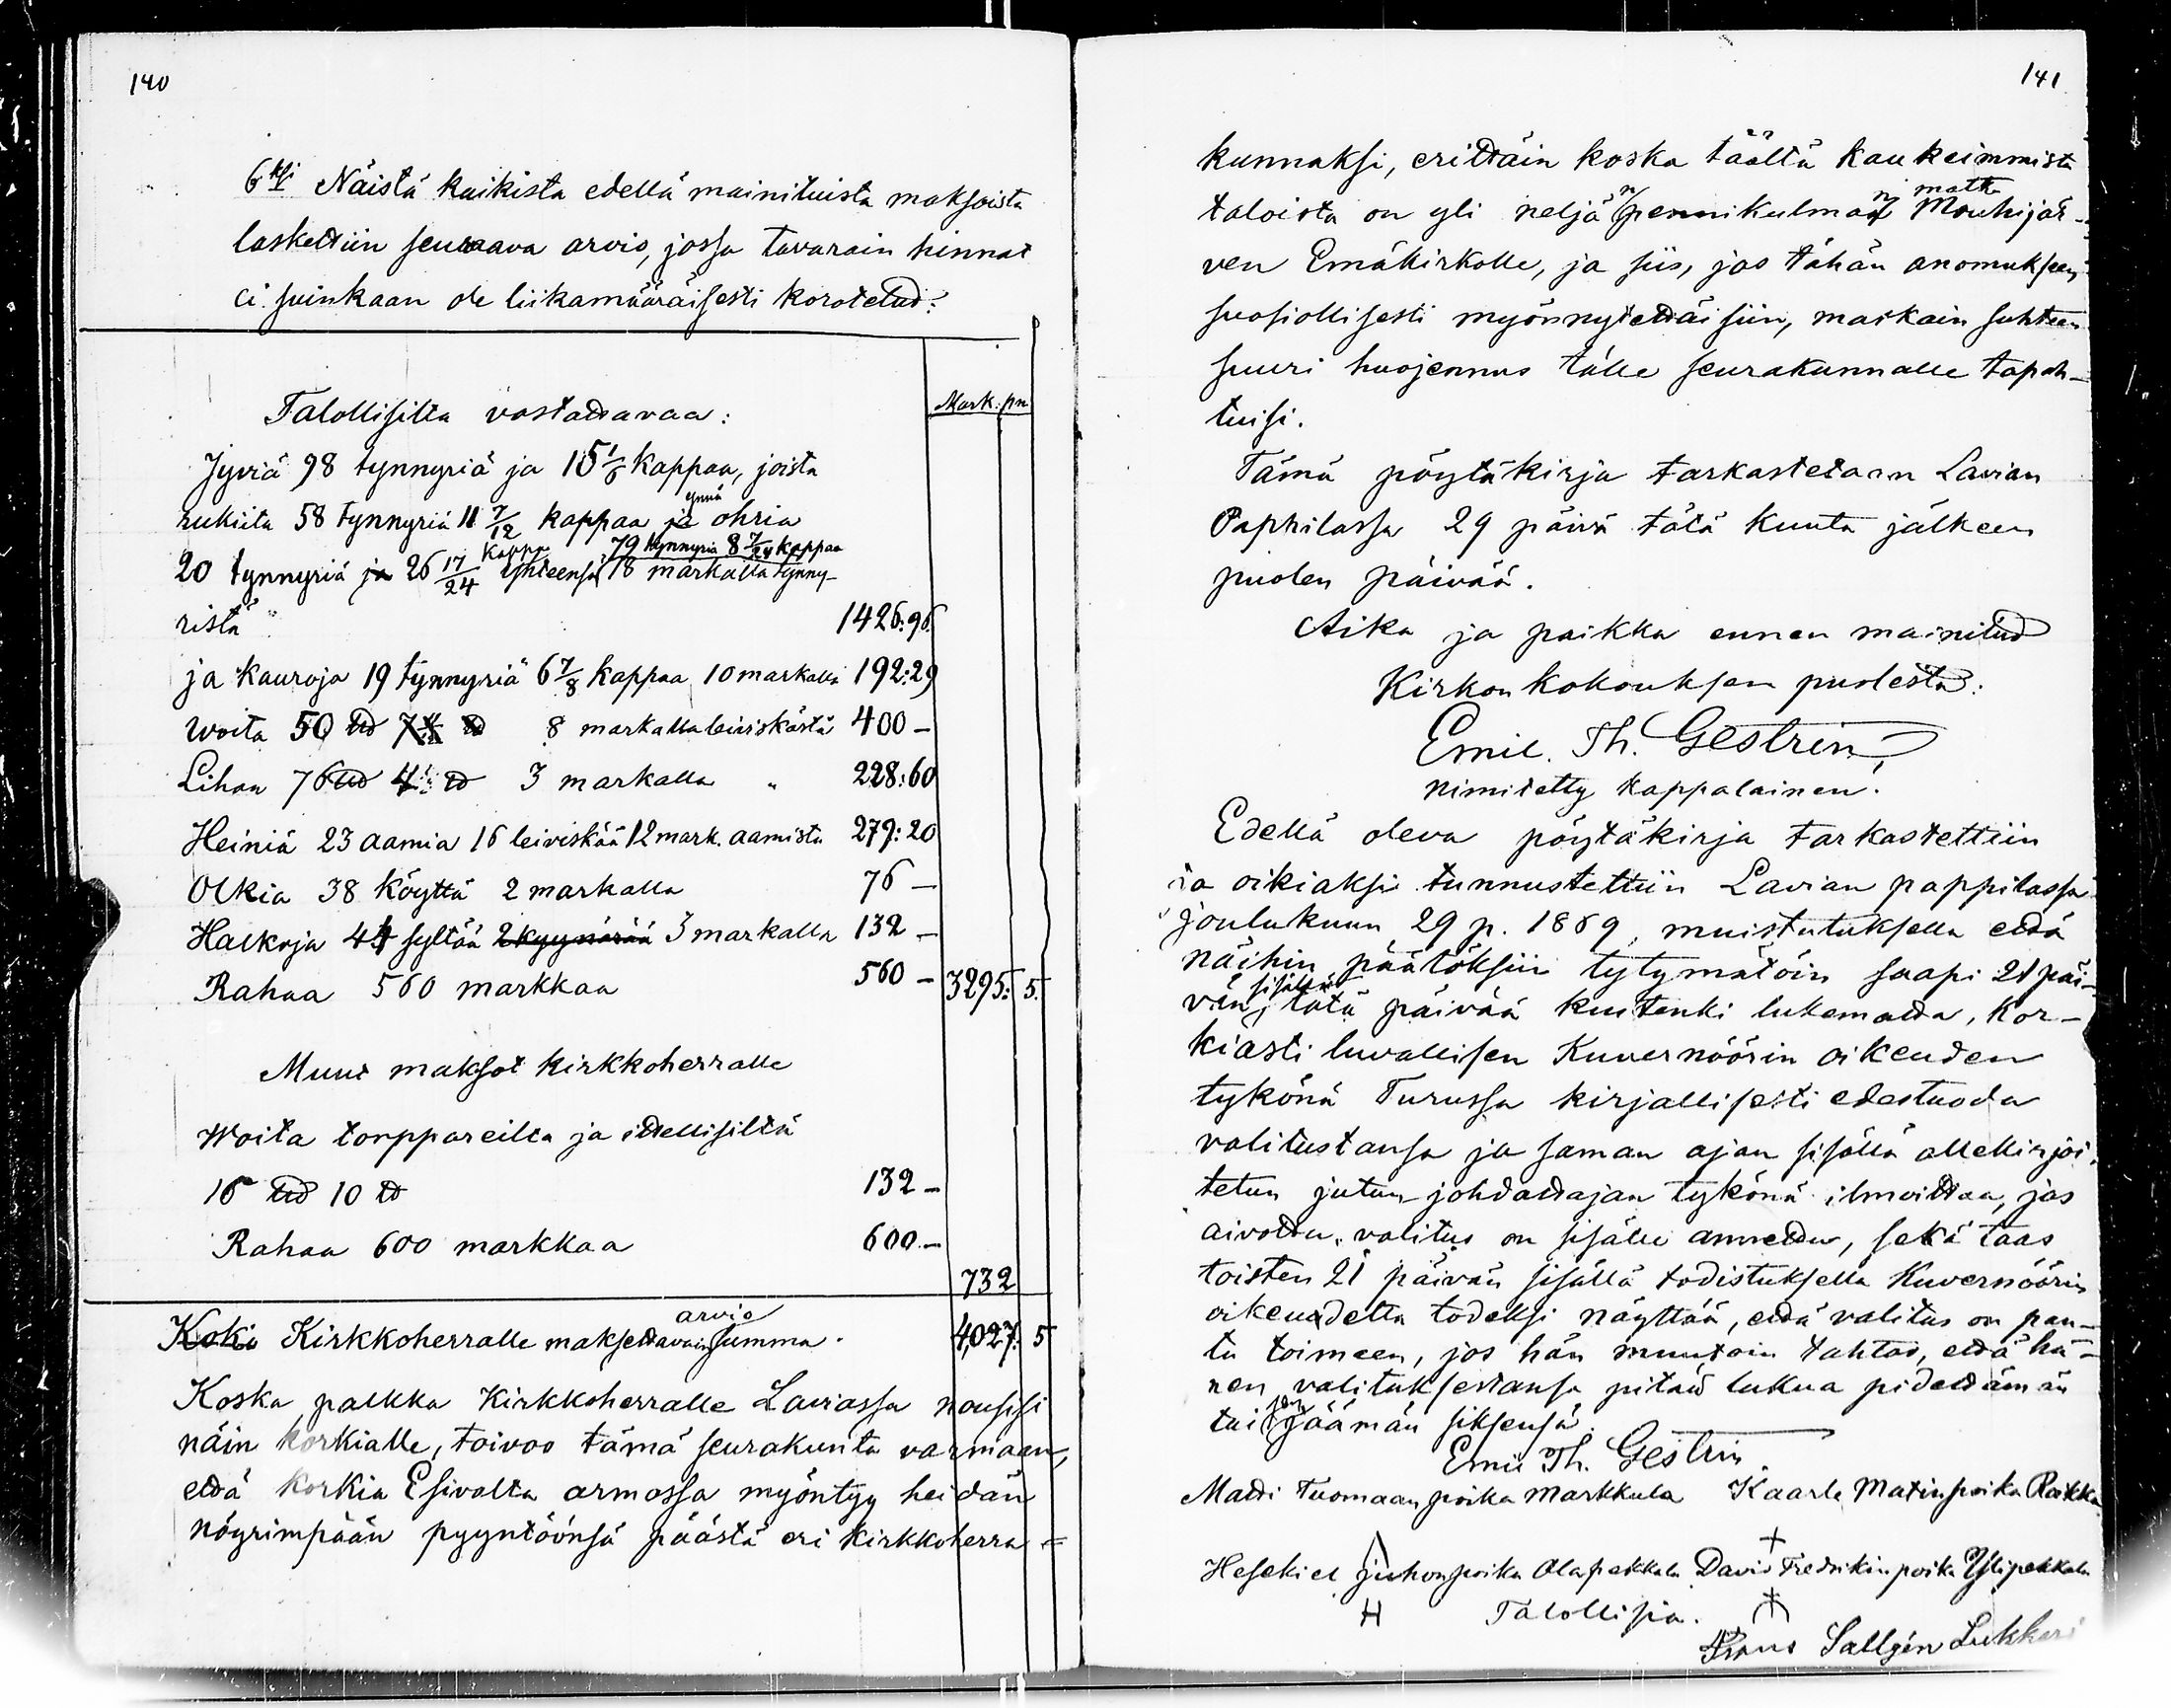 140
6ksi Näistä kaikista edellä mainituista maksoista
laskettiin seuraava arvio, jossa tavarain hinnat
ei suinkaan ole liikamääräisesti korotetud:
Mark. pn.
Talollisilta vastattavaa:
Jyviä 98 tynnyriä ja 15 1/6 kappaa, joista
rukiita 58 tynnyriä 11 7/12 kappaa ja ynnä ohria
20 tynnyriä ja 26 17/24 kappa yhteensä 79 tynnyriä 8 7/24 kappaa 18 markalla tynny-
ristä 1426:96.
ja kauroja 19 tynnyriä 6 7/8 kappaa 10 markalla 192:29
Woita 50 8 markalla leiviskästä 400 -
Lihaa 76 3 markalla " 228:60
Heiniä 23 aamia 16 leiviskää 12 mark. aamista 279:20
Olkia 38 köyttä 2 markalla 76 -
Halkoja 44 syltää 2 kyynärää 3 markalla 132 -
Rahaa 560 markkaa 560 - 3295: 5.
Muut maksot kirkkoherralle
Woita torppareilta ja itellisiltä
16 10 132 -
Rahaa 600 markkaa 600.-
732
Koko Kirkkoherralle maksettavain arvio summa. 4,027: 5
Koska palkka Kirkkoherralle Laviassa nousisi
näin korkialle, toivoo tämä seurakunta varmaan,
että korkia Esivalta armossa myöntyy heidän
nöyrimpään pyyntöönsä päästä eri kirkkoherra=
141
kunnaksi, erittäin koska täältä kaukeimmista
taloista on yli neljän pennikulman matka Mouhijär-
ven Emäkirkolle, ja siis, jos tähän anomukseen
suosiollisesti myönnytettäisiin, matkain suhteen
suuri huojennus tälle seurakunnalle tapah-
tuisi.
Tämä pöytäkirja tarkastetaan Lavian
Paphilassa 29 päivä tätä kuuta jälkeen
puolen päivää.
Aika ja paikka ennen mainitud
Kirkon kokouksen puolesta:
Emil. Th. Gestrin,
nimitetty kappalainen.
Edellä oleva pöytäkirja tarkastettiin
ja oikiaksi tunnustettiin Lavian pappilassa
Joulukuun 29 p. 1869, muistutuksella että
näihin päätöksiin tytymätöin saapi 21 päi-
vän sisällä tätä päivää kuitenki lukematta, Kor-
kiasti luvallisen Kuvernöörin oikeuden
tykönä Turussa kirjallisesti edestuoda
valitustansa ja saman ajan sisällä allekirjoi-
tetun jutun johdattajan tykönä ilmoittaa, jos
aivottu valitus on sisälle annettu, sekä taas
toisten 21 päivän sisällä todistuksella Kuvernöörin
oikeudelta todeksi näyttää, että valitus on pan-
tu toimeen, jos hän muutoin tahtoo, että hä-
nen valituksestansa pitää lukua pidettämän
tai sen jäämän siksensä.
Emil Th. Gestrin
Matti Tuomaanpoika Markkula Kaarle Matinpoika Raikka
Hesekiel Juhonpoika Alapekkala David Fredrikinpoika Ylipekkala
H Talollisia.
Frans Sallgén Lukkari